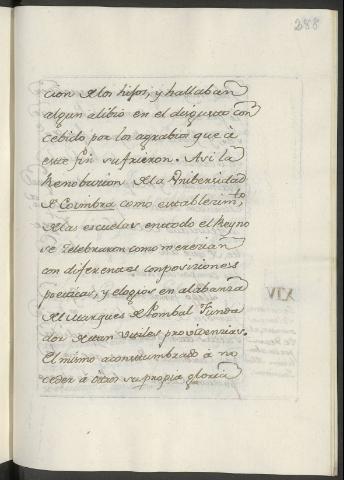 288
cion de los hijos, y hallaban
algun alibio en el disgusto con
cebido, por los agrabios que à
este fin sufrieron. Asi la
Rembucion de la Vnibersidad
de Coimbra como establezim.to
de las escuelas, en todo el Reyno
se zelebraron como merecian
con diferentes conposiziones
poeticas, y elogios en alabanza
del Marques de Pombal Funda
dor de tan vtiles providencias.
El mismo acostumbrado à no
ceder à otros su propia gloria
XIV